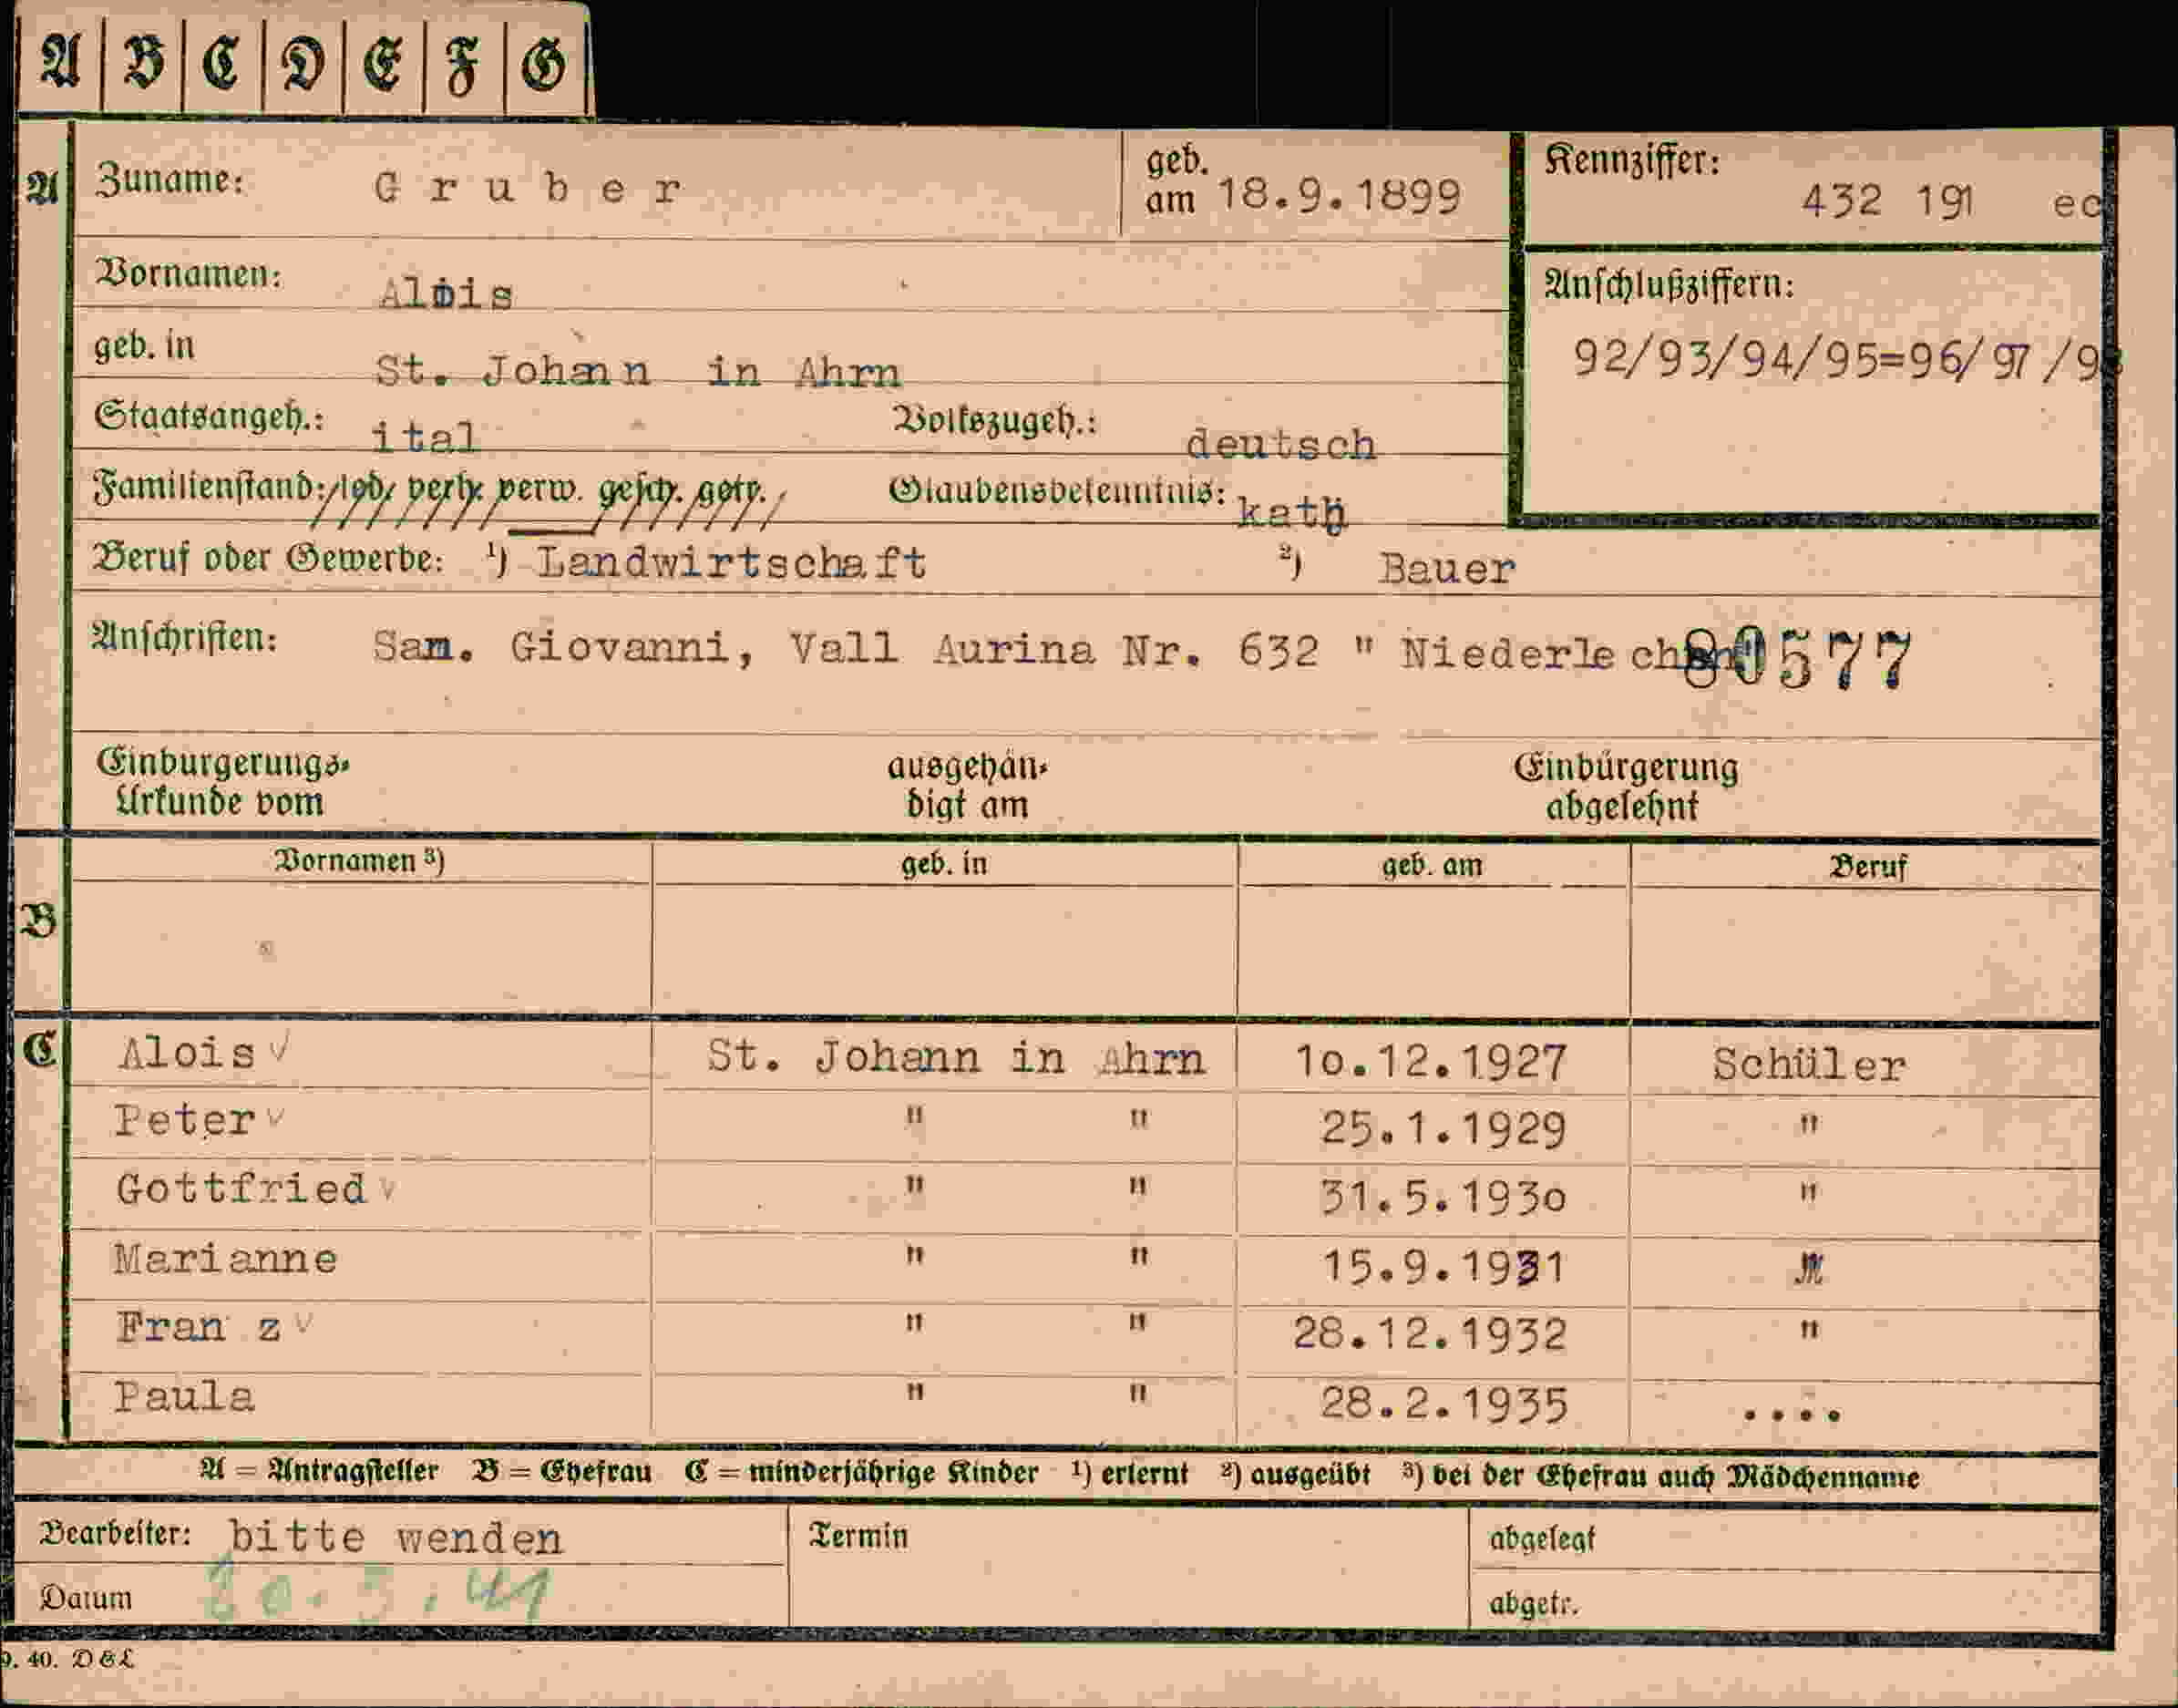 A B C D E F G
A Zuname: Gruber geb. am 18.9.1899 Kennziffer: 432 191 ec
Vornamen: Alois Anschlußziffern:
geb. in St. Johann in Ahrn 92/93/94/95=96/97/98
Staatsangeh.: ital Volkszugeh.: deutsch
Familienstand: led. verh. verw. gesch. getr. Glaubensbekenntnis: kath
Beruf oder Gewerbe: ¹) Landwirtschaft ²) Bauer
Anschriften: Sam. Giovanni, Vall Aurina Nr. 632 " 80577
Einbürgerungs- ausgehän- Einbürgerung
Urkunde vom digt am abgelehnt
Vornamen ³) geb. in geb. am Beruf
B
C Alois St. Johann in Ahrn 10.12.1927 Schüler
Peter " " 25.1.1929 "
Gottfried " " 31.5.1930 "
Marianne " " 15.9.1931
Fran z " " 28.12.1932 "
Paula " " 28.2.1935 ....
A = Antragsteller B = Ehefrau C = minderjährige Kinder ¹) erlernt ²) ausgeübt ³) bei der Ehefrau auch Mädchenname
Bearbeiter: bitte wenden Termin abgelegt
Datum abgetr.
9. 40. D&L